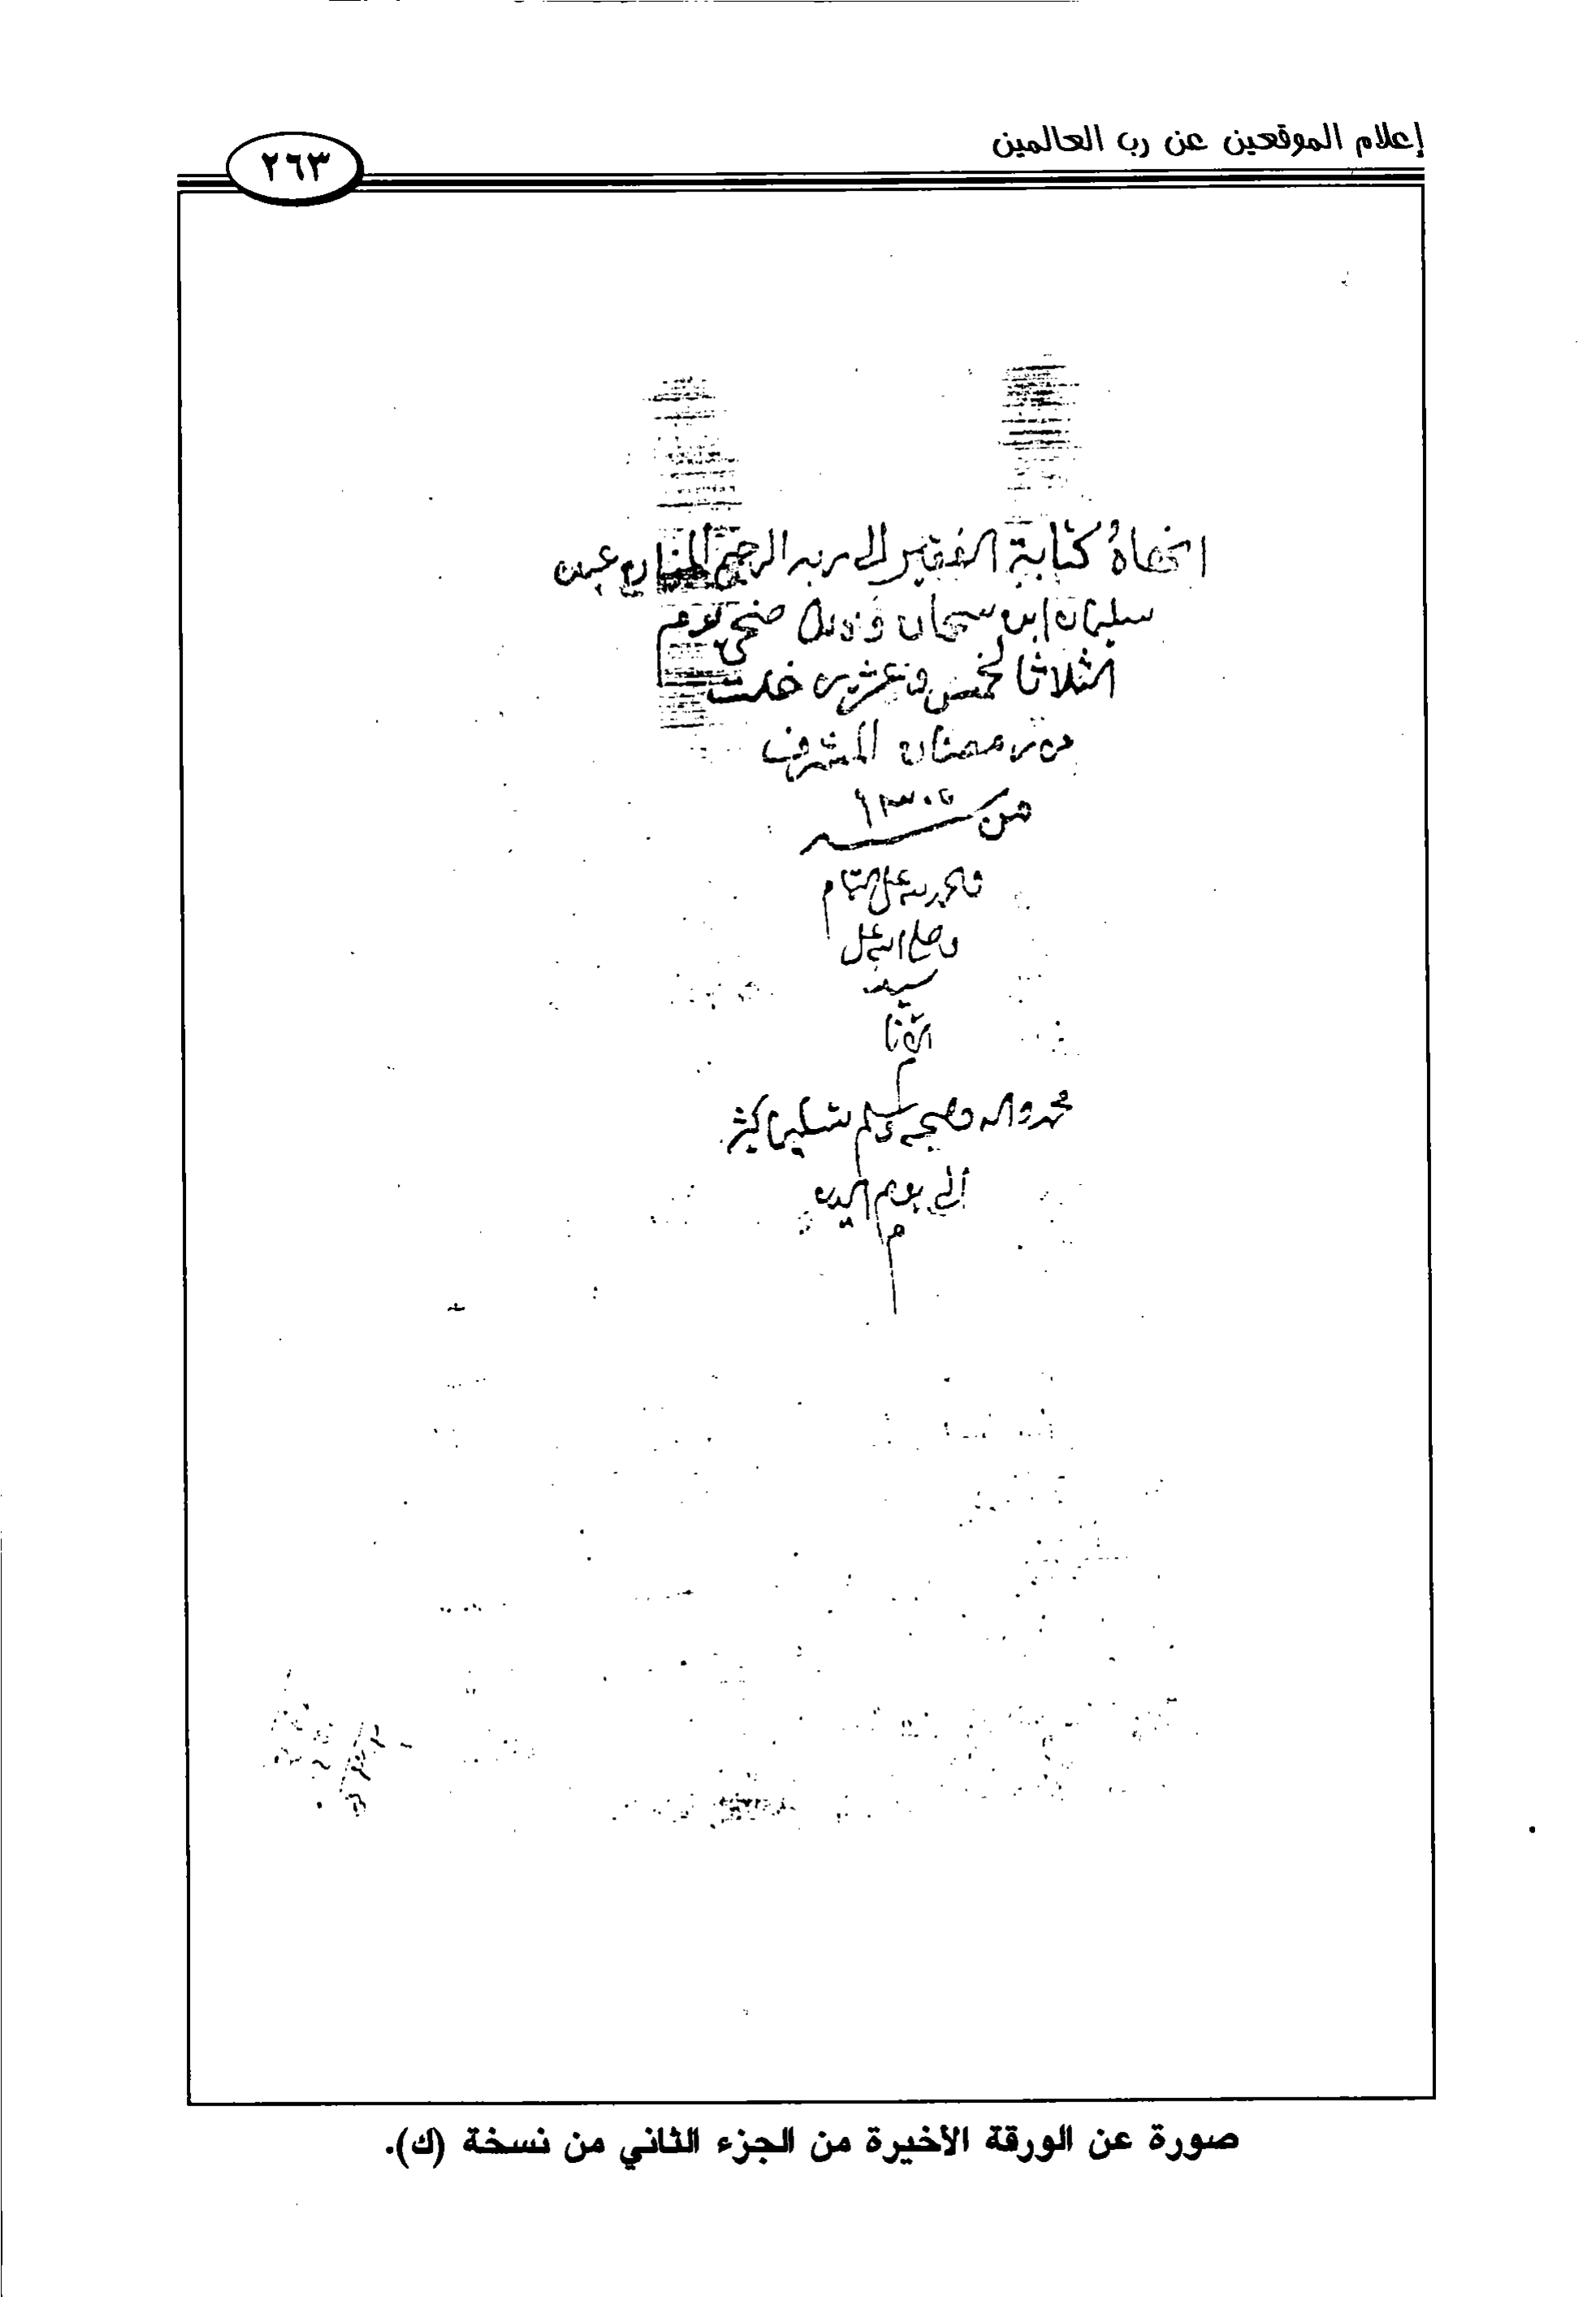 إعلام الموقعين عن رب العالمين
٢٦٣
انهاه كتابة الفقير الى ربه الرحيم المنان عبده
سليمان ابن سحمان وذلك ضحى يوم
الثلاثا لخمس وعشرين خلت
من رمضان المشرف
من ١٣٠٥
فالحمد لله على التمام
وصلى الله على
سيد
الانام
محمد واله وصحبه وسلم تسليما كثير
الى يوم الدين
م
صورة عن الورقة الأخيرة من الجزء الثاني من نسخة (ك).